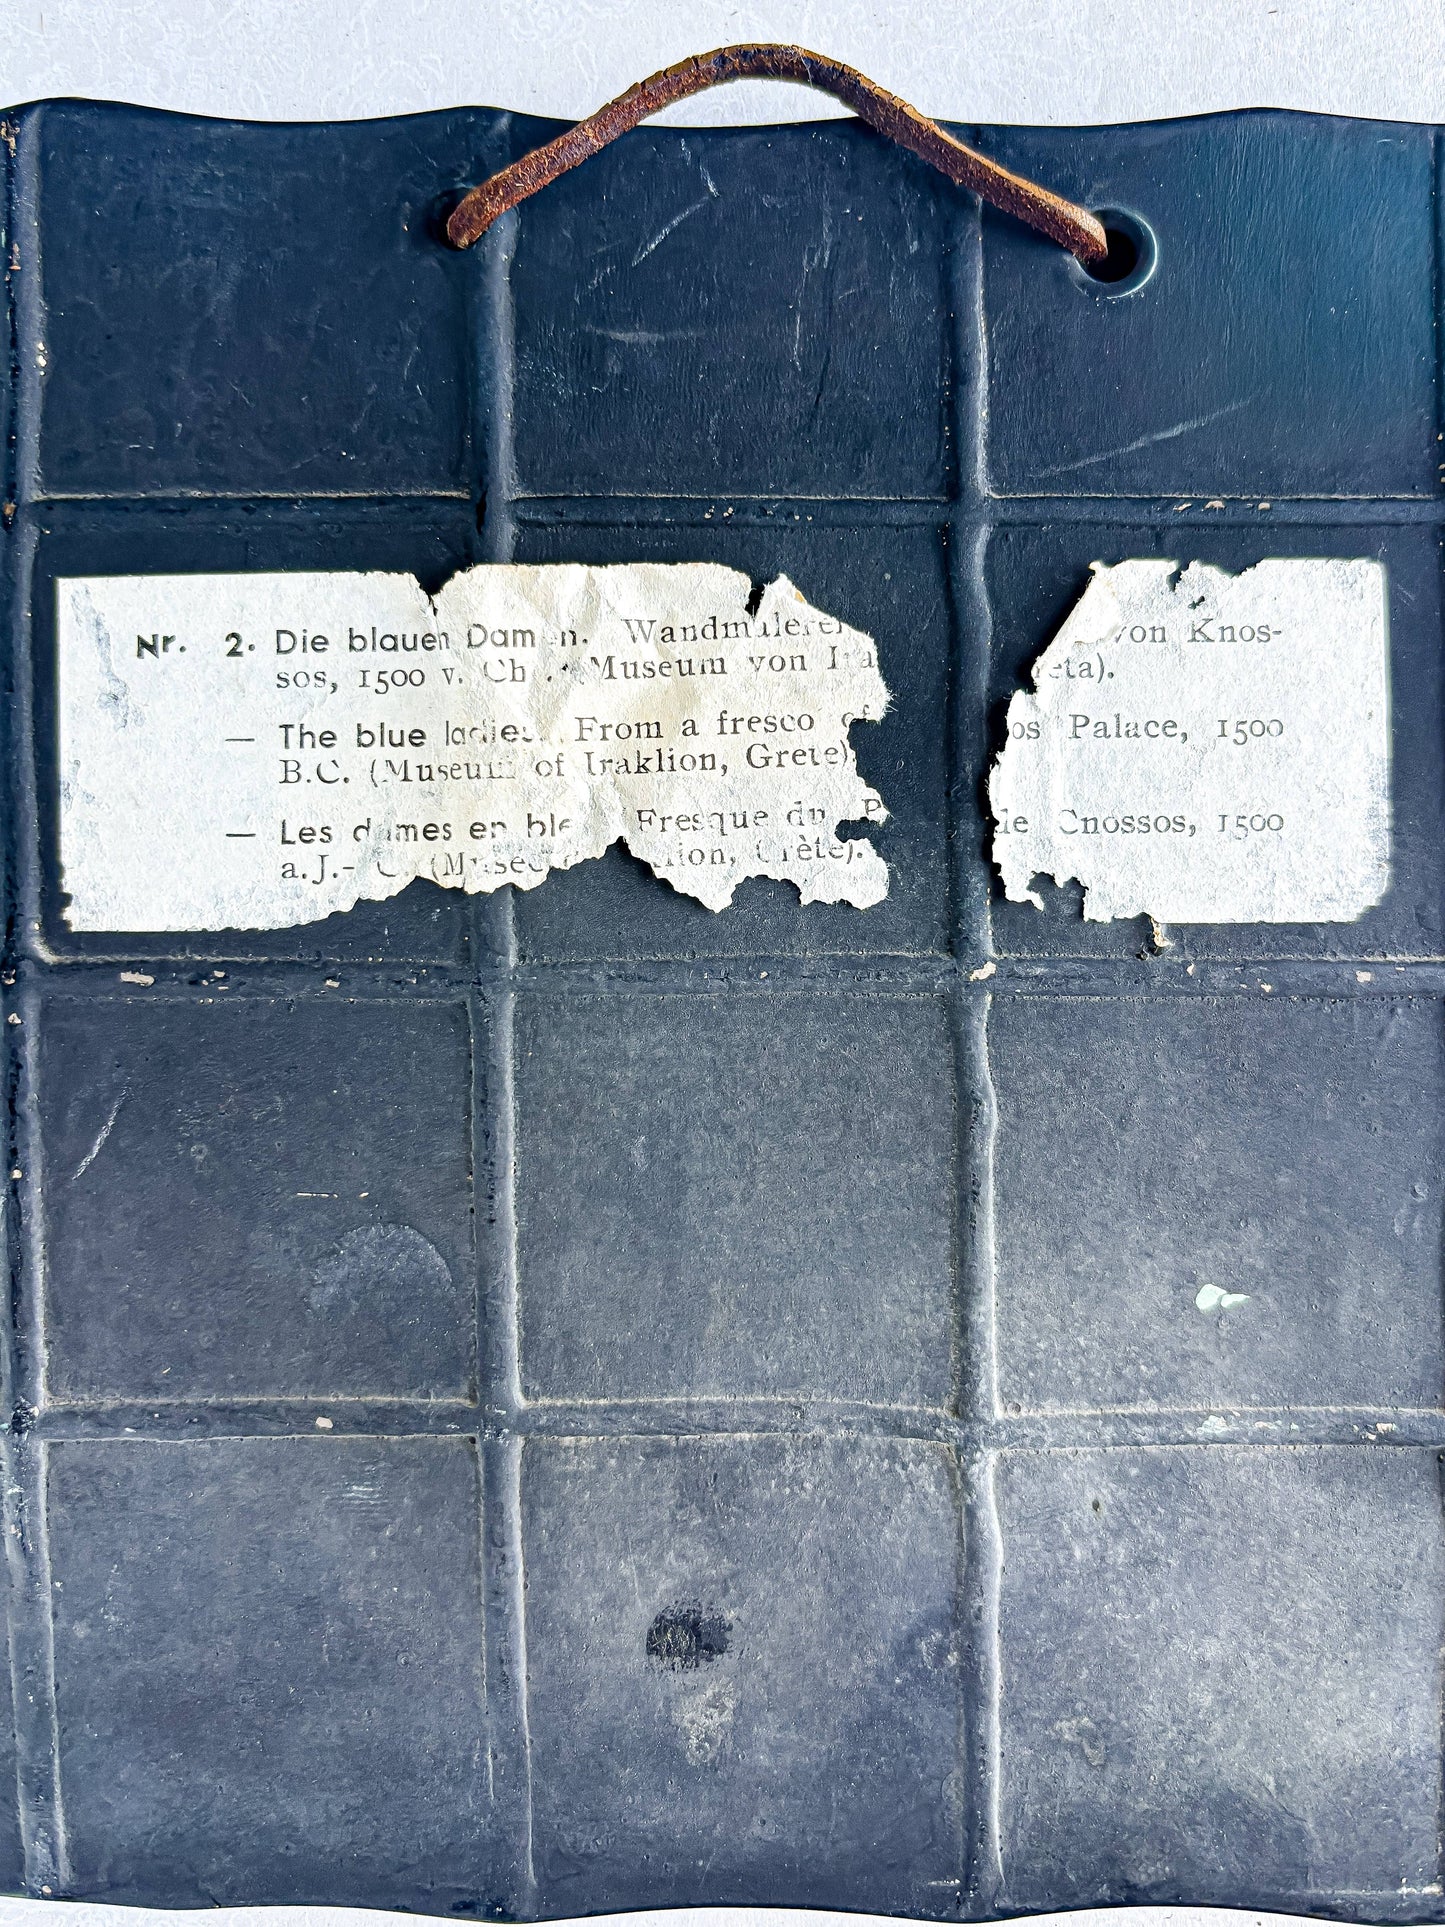 Nr. 2. Die blauen Damen. Wandmalerei von Knos-
sos, 1500 v. Ch. Museum von
— The blue ladies. From a fresco of Palace, 1500
B.C. (Museum of Iraklion, Grete).
— Les dames en Fresque du Cnossos, 1500
a.J.- C. (Crète).